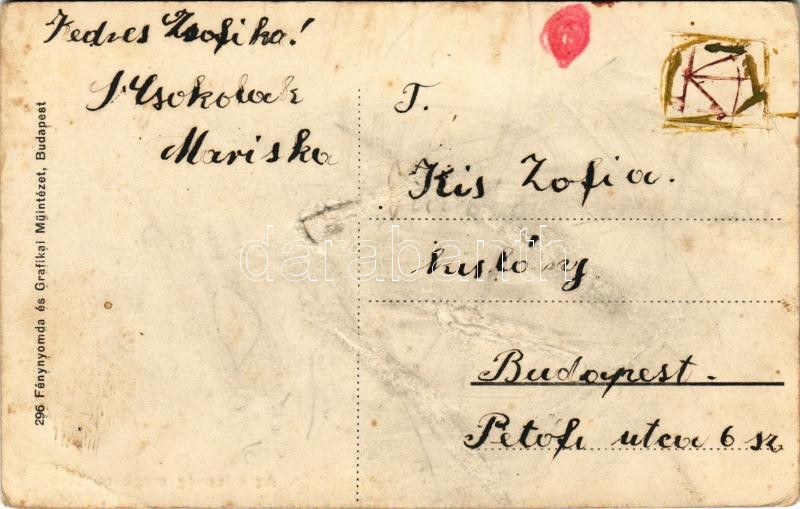 Kedves Zsofika!
Csokolak
Mariska
T.
Kis Zofia.
kislány
Budapest.
Petőfi utca 6 sz.
296 Fénynyomda és Grafikai Műintézet, Budapest
darabanth